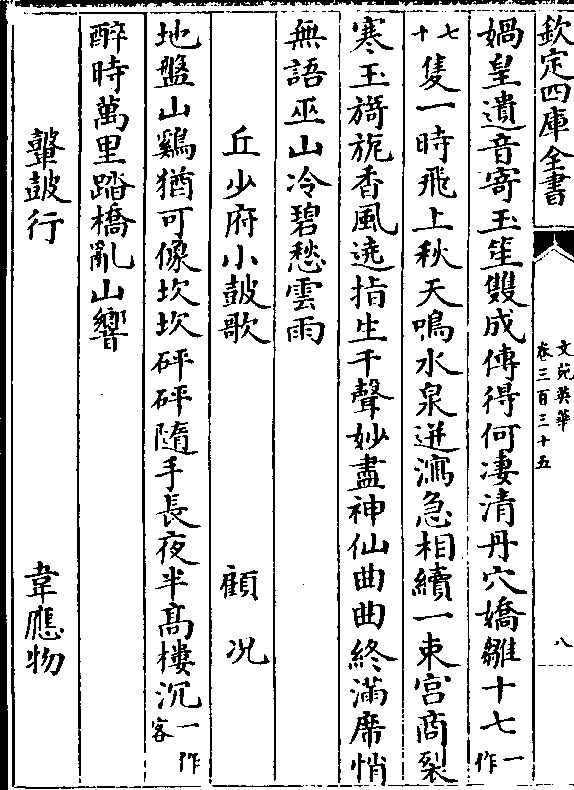 欽定四庫全書
文苑英華
卷三百三十五
八
媧皇遺音寄玉笙雙成傳得何凄清丹穴嬌雛十七一作
十七隻一時飛上秋天鳴水泉迸瀉急相續一束宮商裂
寒玉旖旎香風遶指生千聲妙盡神仙曲曲終滿席悄
無語巫山冷碧愁雲雨
丘少府小鼓歌
顧況
地盤山鷄猶可像坎坎砰砰隨手長夜半髙樓沉一作客
醉時萬里踏橋亂山響
鼙鼓行
韋應物